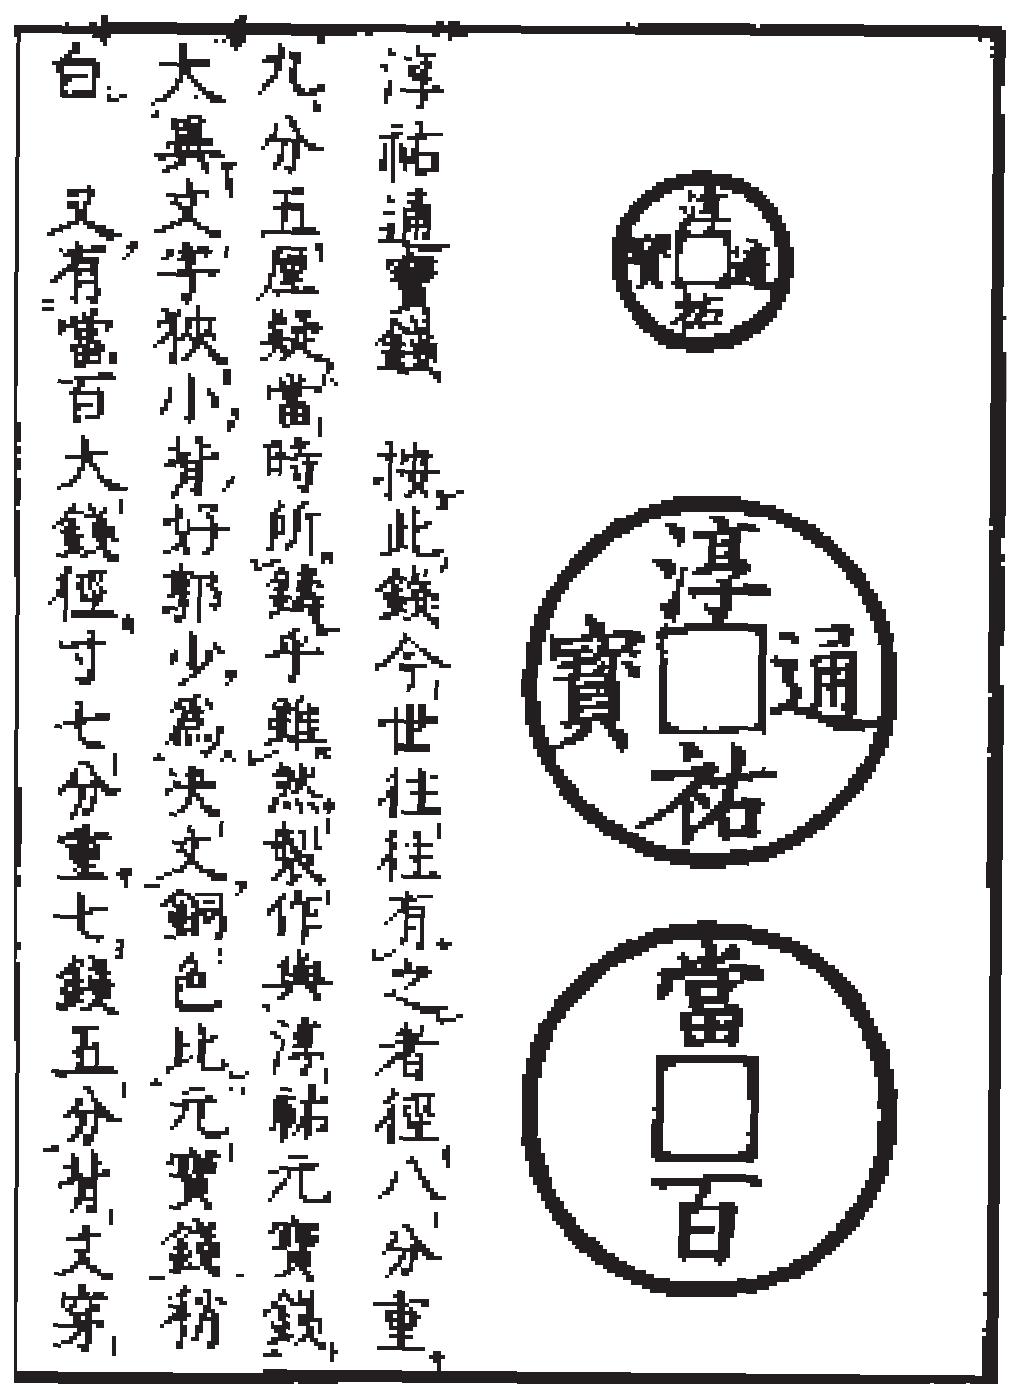 淳祐通寶
淳祐通寶
當百
淳祐通寶錢 按此錢今世往往有之者徑八分重
九分五厘疑當時所鑄乎雖然製作與淳祐元寶錢
大異文字狹小背好郭少爲决文銅色比元寶錢稍
白 又有當百大錢徑寸七分重七錢五分背文穿